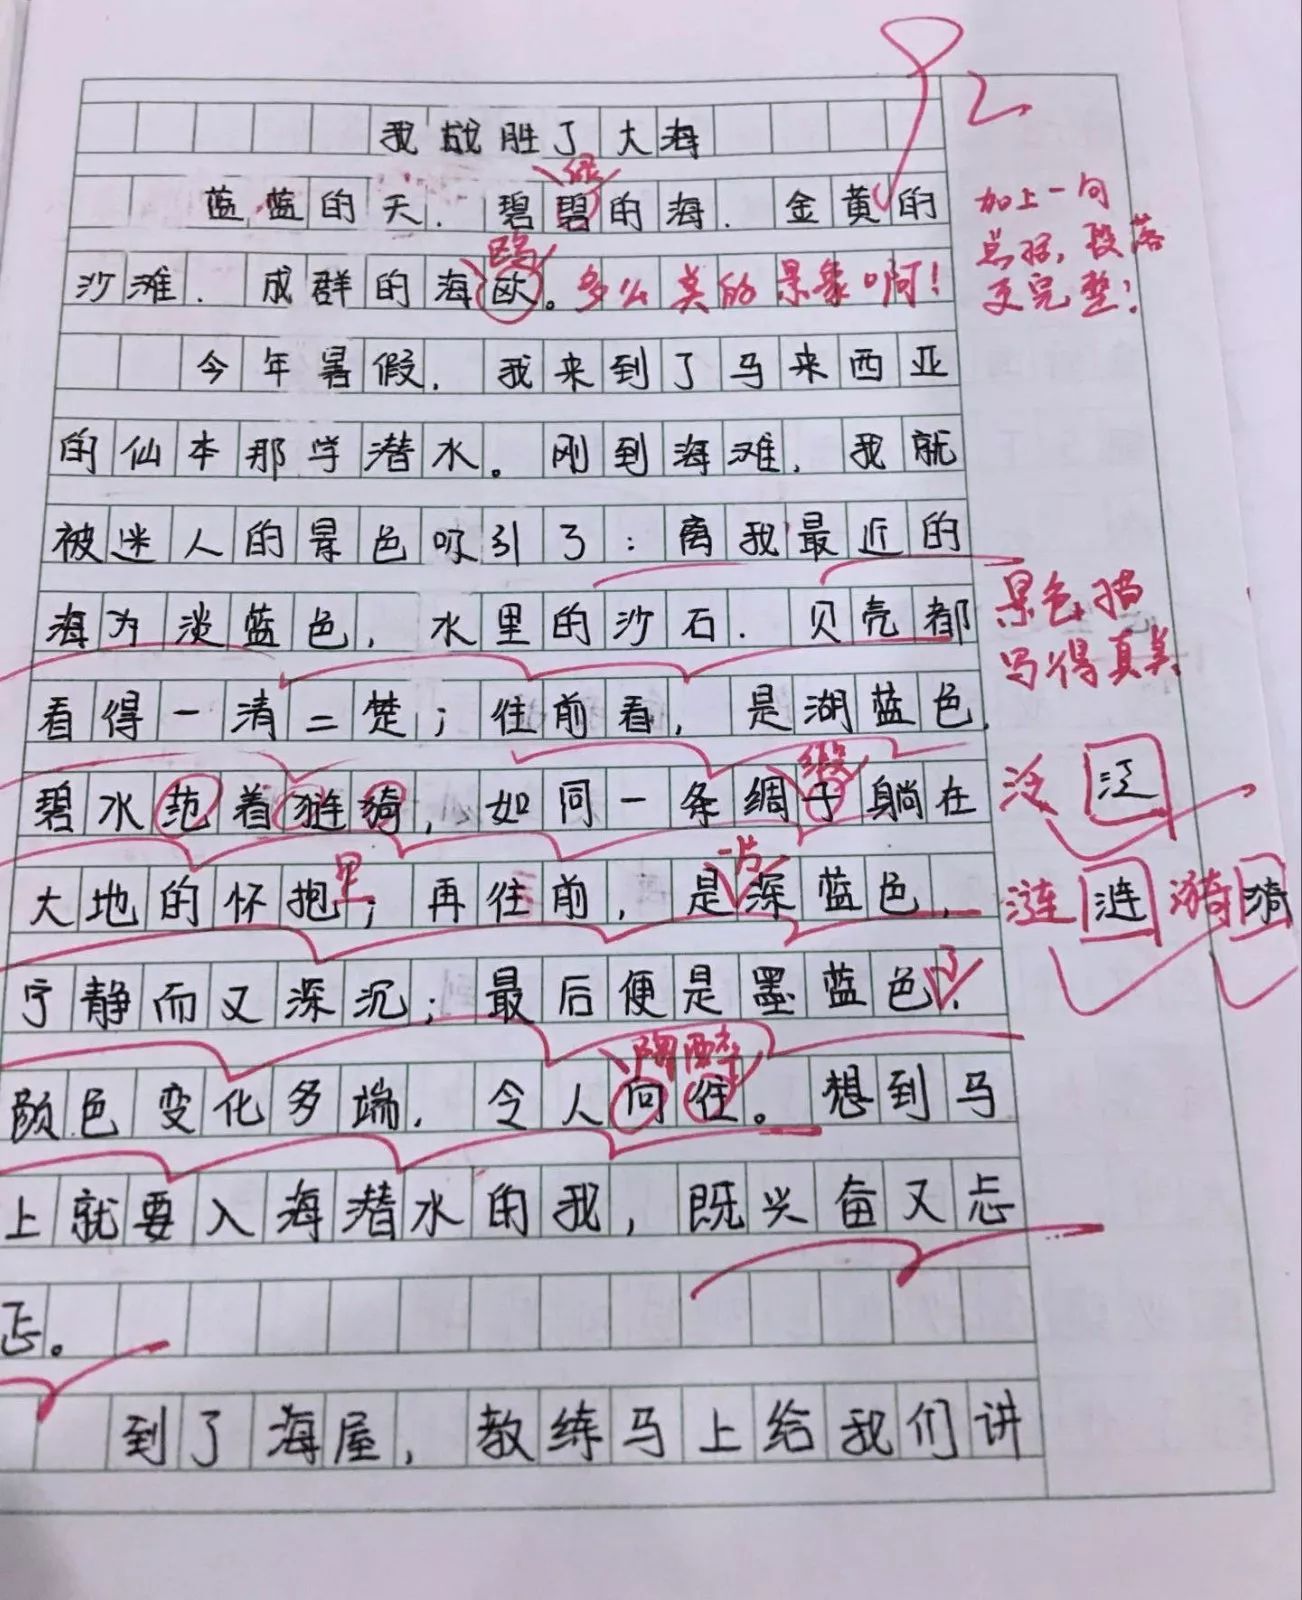 我战胜了大海
绿
蓝蓝的天.碧碧的海.金黄的
鸥
沙滩.成群的海欧。多么美的景象啊!
加上一句
点评,段落
更完整!
今年暑假,我来到了马来西亚
的仙本那学潜水。刚到海滩,我就
被迷人的景色吸引了:离我最近的
海为淡蓝色,水里的沙石.贝壳都
景色描
写得真美
看得一清二楚;往前看,是湖蓝色,
缎
碧水范着涟漪,如同一条绸子躺在
泛 泛
里 一片
大地的怀抱;再往前,是深蓝色,
涟 涟 漪 漪
宁静而又深沉;最后便是墨蓝色,
了
陶醉
颜色变化多端,令人向往。想到马
上就要入海潜水的我,既兴奋又忐
忑。
到了海屋,教练马上给我们讲